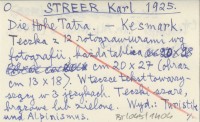 O. STREER Karl 1925.
Die Hohe Tatra. – Kesmark.
Teczka z 12 rotograwiurami wg
fotografii, każda tablica
cm 20 x 27 (obraz
cm 13 x 18). W teczce tekst towarzy-
szący w 3 językach. Teczka szara,
brązowa lub zielona. Wyd.: Turistik
und Alpinismus.